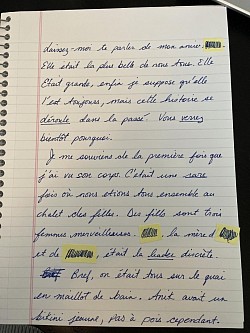 Laissez-moi te parler de mon amie
Elle était la plus belle de nous tous. Elle
Était grande, enfin je suppose qu'elle
l'est toujours, mais cette histoire se
déroule dans la passé. Vous verrez
bientôt pourquoi.
Je me souviens de la première fois que
j'ai vu son corps. C'était une
fois où nous étions tous ensemble au
chalet des filles. Des fille sont trois
femmes merveilleuses. la mère d
et de était la leader discrète.
Bref, on était tous sur le quai
en maillot de bain. avait un
bikini jaune, pas à pois cependant.